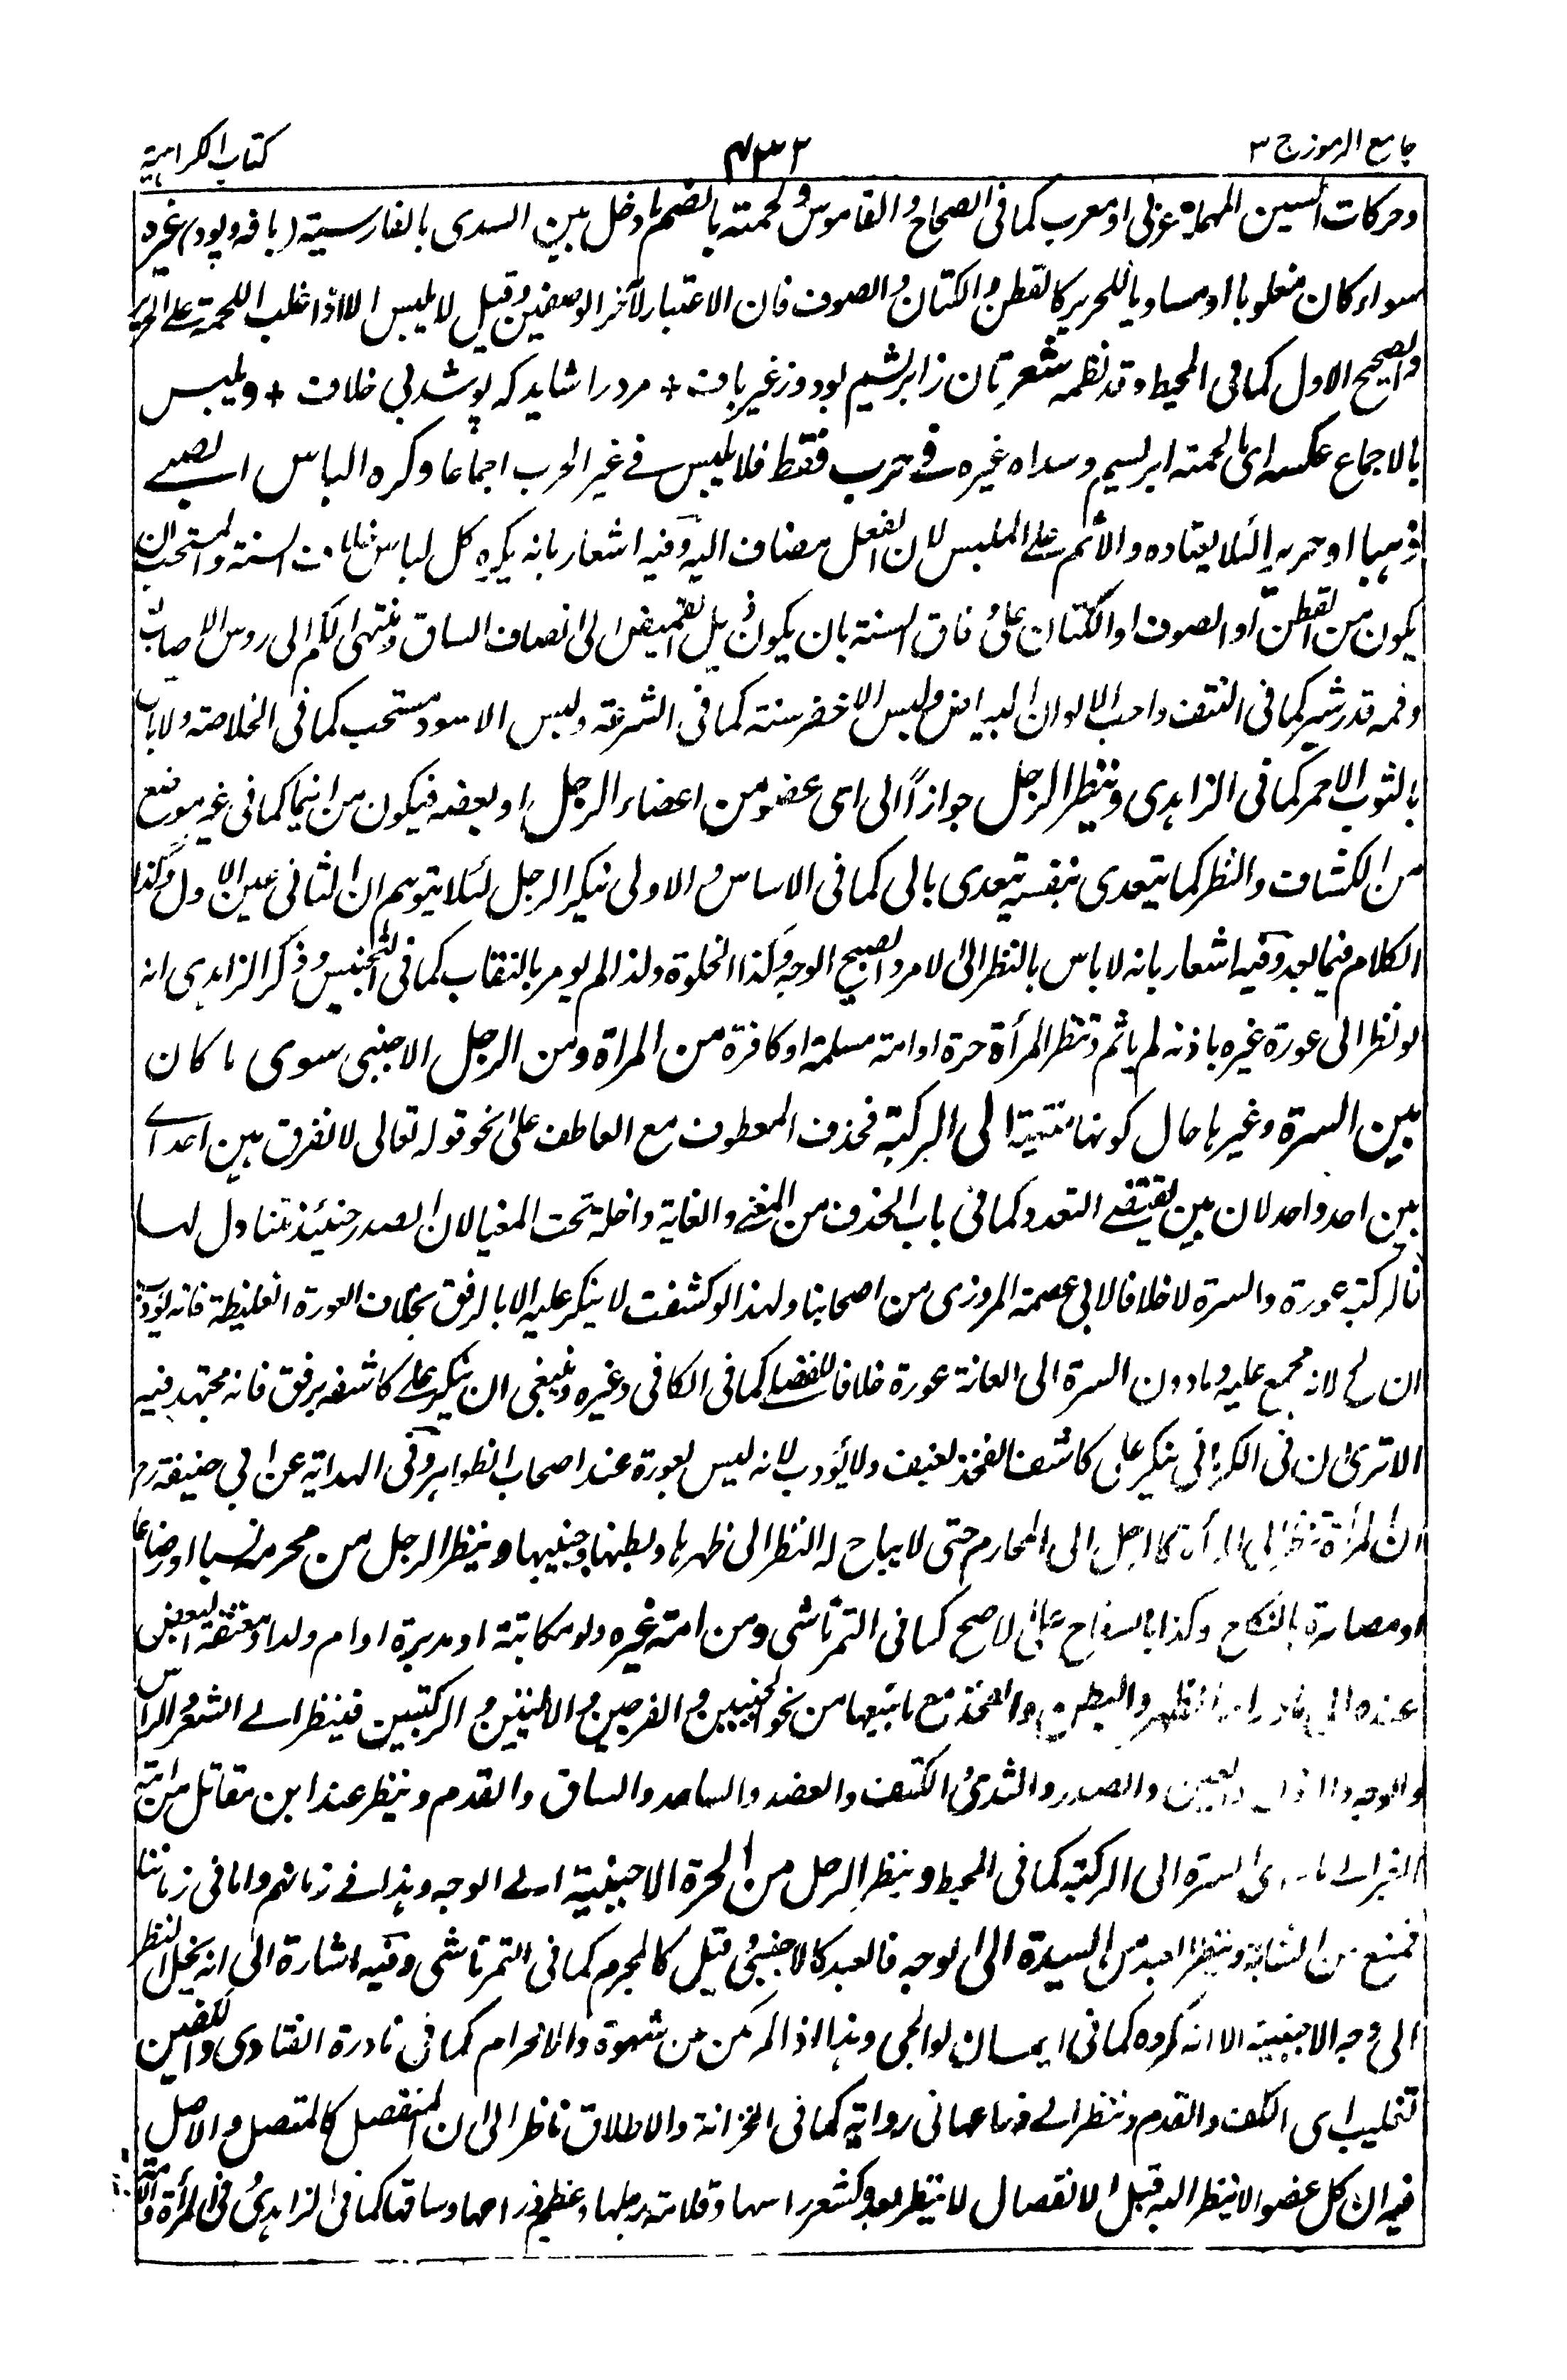 جامع الرموز ج ٣
٤٣٢
كتاب الكراهية
وحركات السين المهملة عربى او معرب كما فى الصحاح والقاموس ولحمته بالضم ما دخل بين السدى بالفارسية (بافه وپود) غيره
سواء كان مغلوبا او مساويا للحرير كالقطن والكتان والصوف فان الاعتبار لآخر الوصفين وقيل لا يلبس الا اذا غلب اللحمة على الحرير
والصحيح الاول كما فى المحيط وقد نظمه شعر تان ز ابريشم بود وز غير بافت + مرد را شايد كه پوشد بى خلاف + ويلبس
بالاجماع عكسه اى ما لحمته ابريسم وسداه غيره فى حرب فقط فلا يلبس فى غير الحرب اجماعا وكره الباس الصبى
ذهبا او حريرا لئلا يعتاده والاثم على الملبس لان الفعل مضاف اليه وفيه اشعار بانه يكره كل لباس خلاف السنة والمستحب ان
يكون من القطن او الصوف او الكتان على وفاق السنة بان يكون ذيل القميص الى انصاف الساق ومنتهى الكم الى روس الاصابع
وفمه قدر شبر كما فى النتف واحب الالوان البياض ولبس الاخضر سنة كما فى الشرعة ولبس الاسود مستحب كما فى الخلاصة ولا باس
بالثوب الاحمر كما فى الزاهدى وينظر الرجل جوازا الى اى عضو من اعضاء الرجل او بعضه فيكون من اسما كما فى غير موضع
من الكشاف والنظر كما يتعدى بنفسه يتعدى بالى كما فى الاساس والاولى تنكير الرجل لئلا يتوهم ان الثانى عين الاول وكذا
الكلام فيما بعد وفيه اشعار بانه لا باس بالنظر الى الامرد الصبيح الوجه وكذا الخلوة ولذا لم يومر بالنقاب كما فى التجنيس وذكر الزاهدى انه
لو نظر الى عورة غيره باذنه لم ياثم وتنظر المرأة حرة او امة مسلمة او كافرة من المراة ومن الرجل الاجنبى سوى ما كان
بين السرة وغيرها حال كونها منتهية الى الركبة فحذف المعطوف مع العاطف على نحو قوله تعالى لا نفرق بين احد اى
بين احد واحد لان بين يقتضى التعدد كما فى باب الحذف من المغنى والغاية داخلة تحت المغيا لان الصدر حينئذ متناول لها
فالركبة عورة والسرة لا خلافا لابى عصمة المروزى من اصحابنا ولهذا لو كشفت لا ينكر عليه الا بالرفق بخلاف العورة الغليظة فانه يؤدب
ان لح لانه مجمع عليه وما دون السرة الى العانة عورة خلافا للفضلى كما فى الكافى وغيره وينبغى ان ينكر على كاشفه برفق فانه مجتهد فيه
الا ترى ان فى الكرمانى ينكر على كاشف الفخذ بعنف ولا يؤدب لانه ليس بعورة عند اصحاب الظواهر وفى الهداية عن ابى حنيفة رح
ان المرأة تنظر الى المرأة كالرجل الى المحارم حتى لا يباح له النظر الى ظهرها وبطنها وجنبيها وينظر الرجل من محرمه نسبا او رضاعا
او مصاهرة بالنكاح وكذا بالسفاح على الاصح كما فى التمرتاشى ومن امة غيره ولو مكاتبة او مدبرة او ام ولد او معتقة البعض
عنده الى ما وراء الظهر والبطن والفخذ مع ما يتبعها من نحو الجنبين والفرجين والاليتين والركبتين فينظر الى الشعر والراس
والوجه والاذن والعين والصدر والثدى والكتف والعضد والساعد والساق والقدم وينظر عند ابن مقاتل من امة
الغير الى ما سوى السرة الى الركبة كما فى المحيط وينظر الرجل من الحرة الاجنبية الى الوجه وهذا فى زمانهم واما فى زماننا
فمنع من الشابة وينظر العبد من السيدة الى الوجه فالعبد كالاجنبى وقيل كالمحرم كما فى التمرتاشى وفيه اشارة الى انه يحل النظر
الى وجه الاجنبية الا انه مكروه كما فى ايمان الولوالجى وهذا اذا لم يكن من شهوة والا فحرام كما فى نادرة الفتاوى والكفين
تغليب اى الكف والقدم وتنظر الى ذراعها فى رواية كما فى الخزانة والاطلاق ناظر الى ان المنفصل كالمتصل والاصل
فيه ان كل عضو لا ينظر اليه قبل الانفصال لا ينظر بعده كشعر راسها وقلامة رجلها وعظم ذراعها وساقها كما فى الزاهدى وفى المرأة